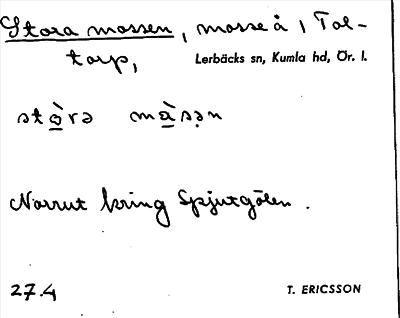 Stora mossen, mosse å, Tal-
torp, Lerbäcks sn, Kumla hd, Ör. l.
stò̱rə mà̱sən
Norrut kring Spjutgölen.
27.4 T. ERICSSON